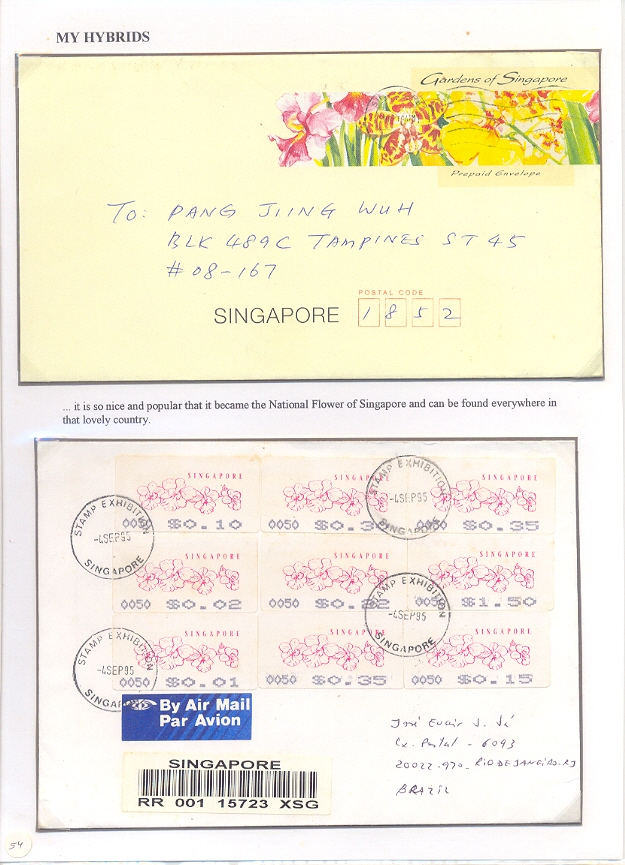 MY HYBRIDS
Gardens of Singapore
Prepaid Envelope
TO: PANG JIING WUH
BLK 489C TAMPINES ST 45
#08-167
POSTAL CODE
SINGAPORE 1852
... it is so nice and popular that it became the National Flower of Singapore and can be found everywhere in
that lovely country.
SINGAPORE SINGAPORE SINGAPORE
0050 $0.10 0050 $0.30 0050 $0.35
STAMP EXHIBITION -4SEP95 SINGAPORE
STAMP EXHIBITION -4SEP95 SINGAPORE
SINGAPORE SINGAPORE SINGAPORE
0050 $0.02 0050 0050 $1.50
STAMP EXHIBITION -4SEP95 SINGAPORE
SINGAPORE SINGAPORE SINGAPORE
0050 $0.01 0050 $0.35 0050 $0.15
STAMP EXHIBITION -4SEP95 SINGAPORE
By Air Mail
Par Avion
José J. Sá
Cx. Postal - 6093
20022-970 - RIO DE JANEIRO-RJ
BRAZIL
SINGAPORE
RR 001 15723 XSG
54